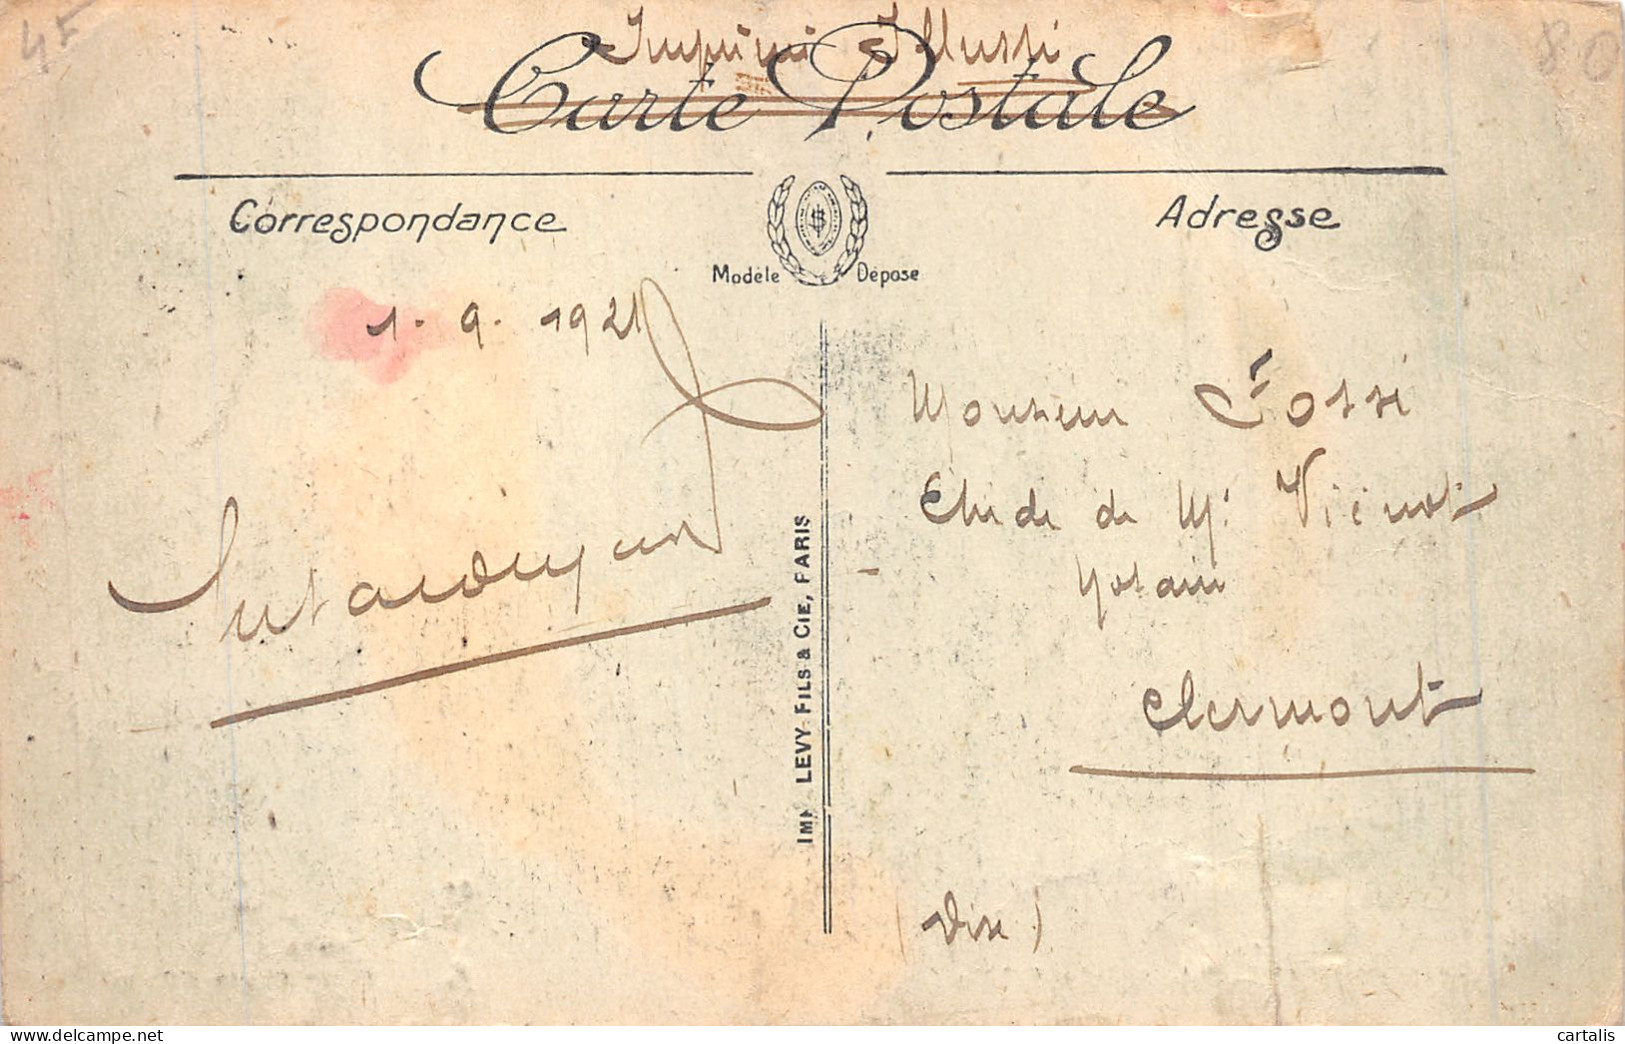 4F
80
Imprimé Illustré
Carte Postale
Correspondance
Adresse
Modèle Déposé
1. 9. 1921
Monsieur Cossé
Etude de Mr Viénot
Notaire
Clermont
(Oise)
IMP. LEVY FILS & CIE, PARIS
cartalis
delcampe.net